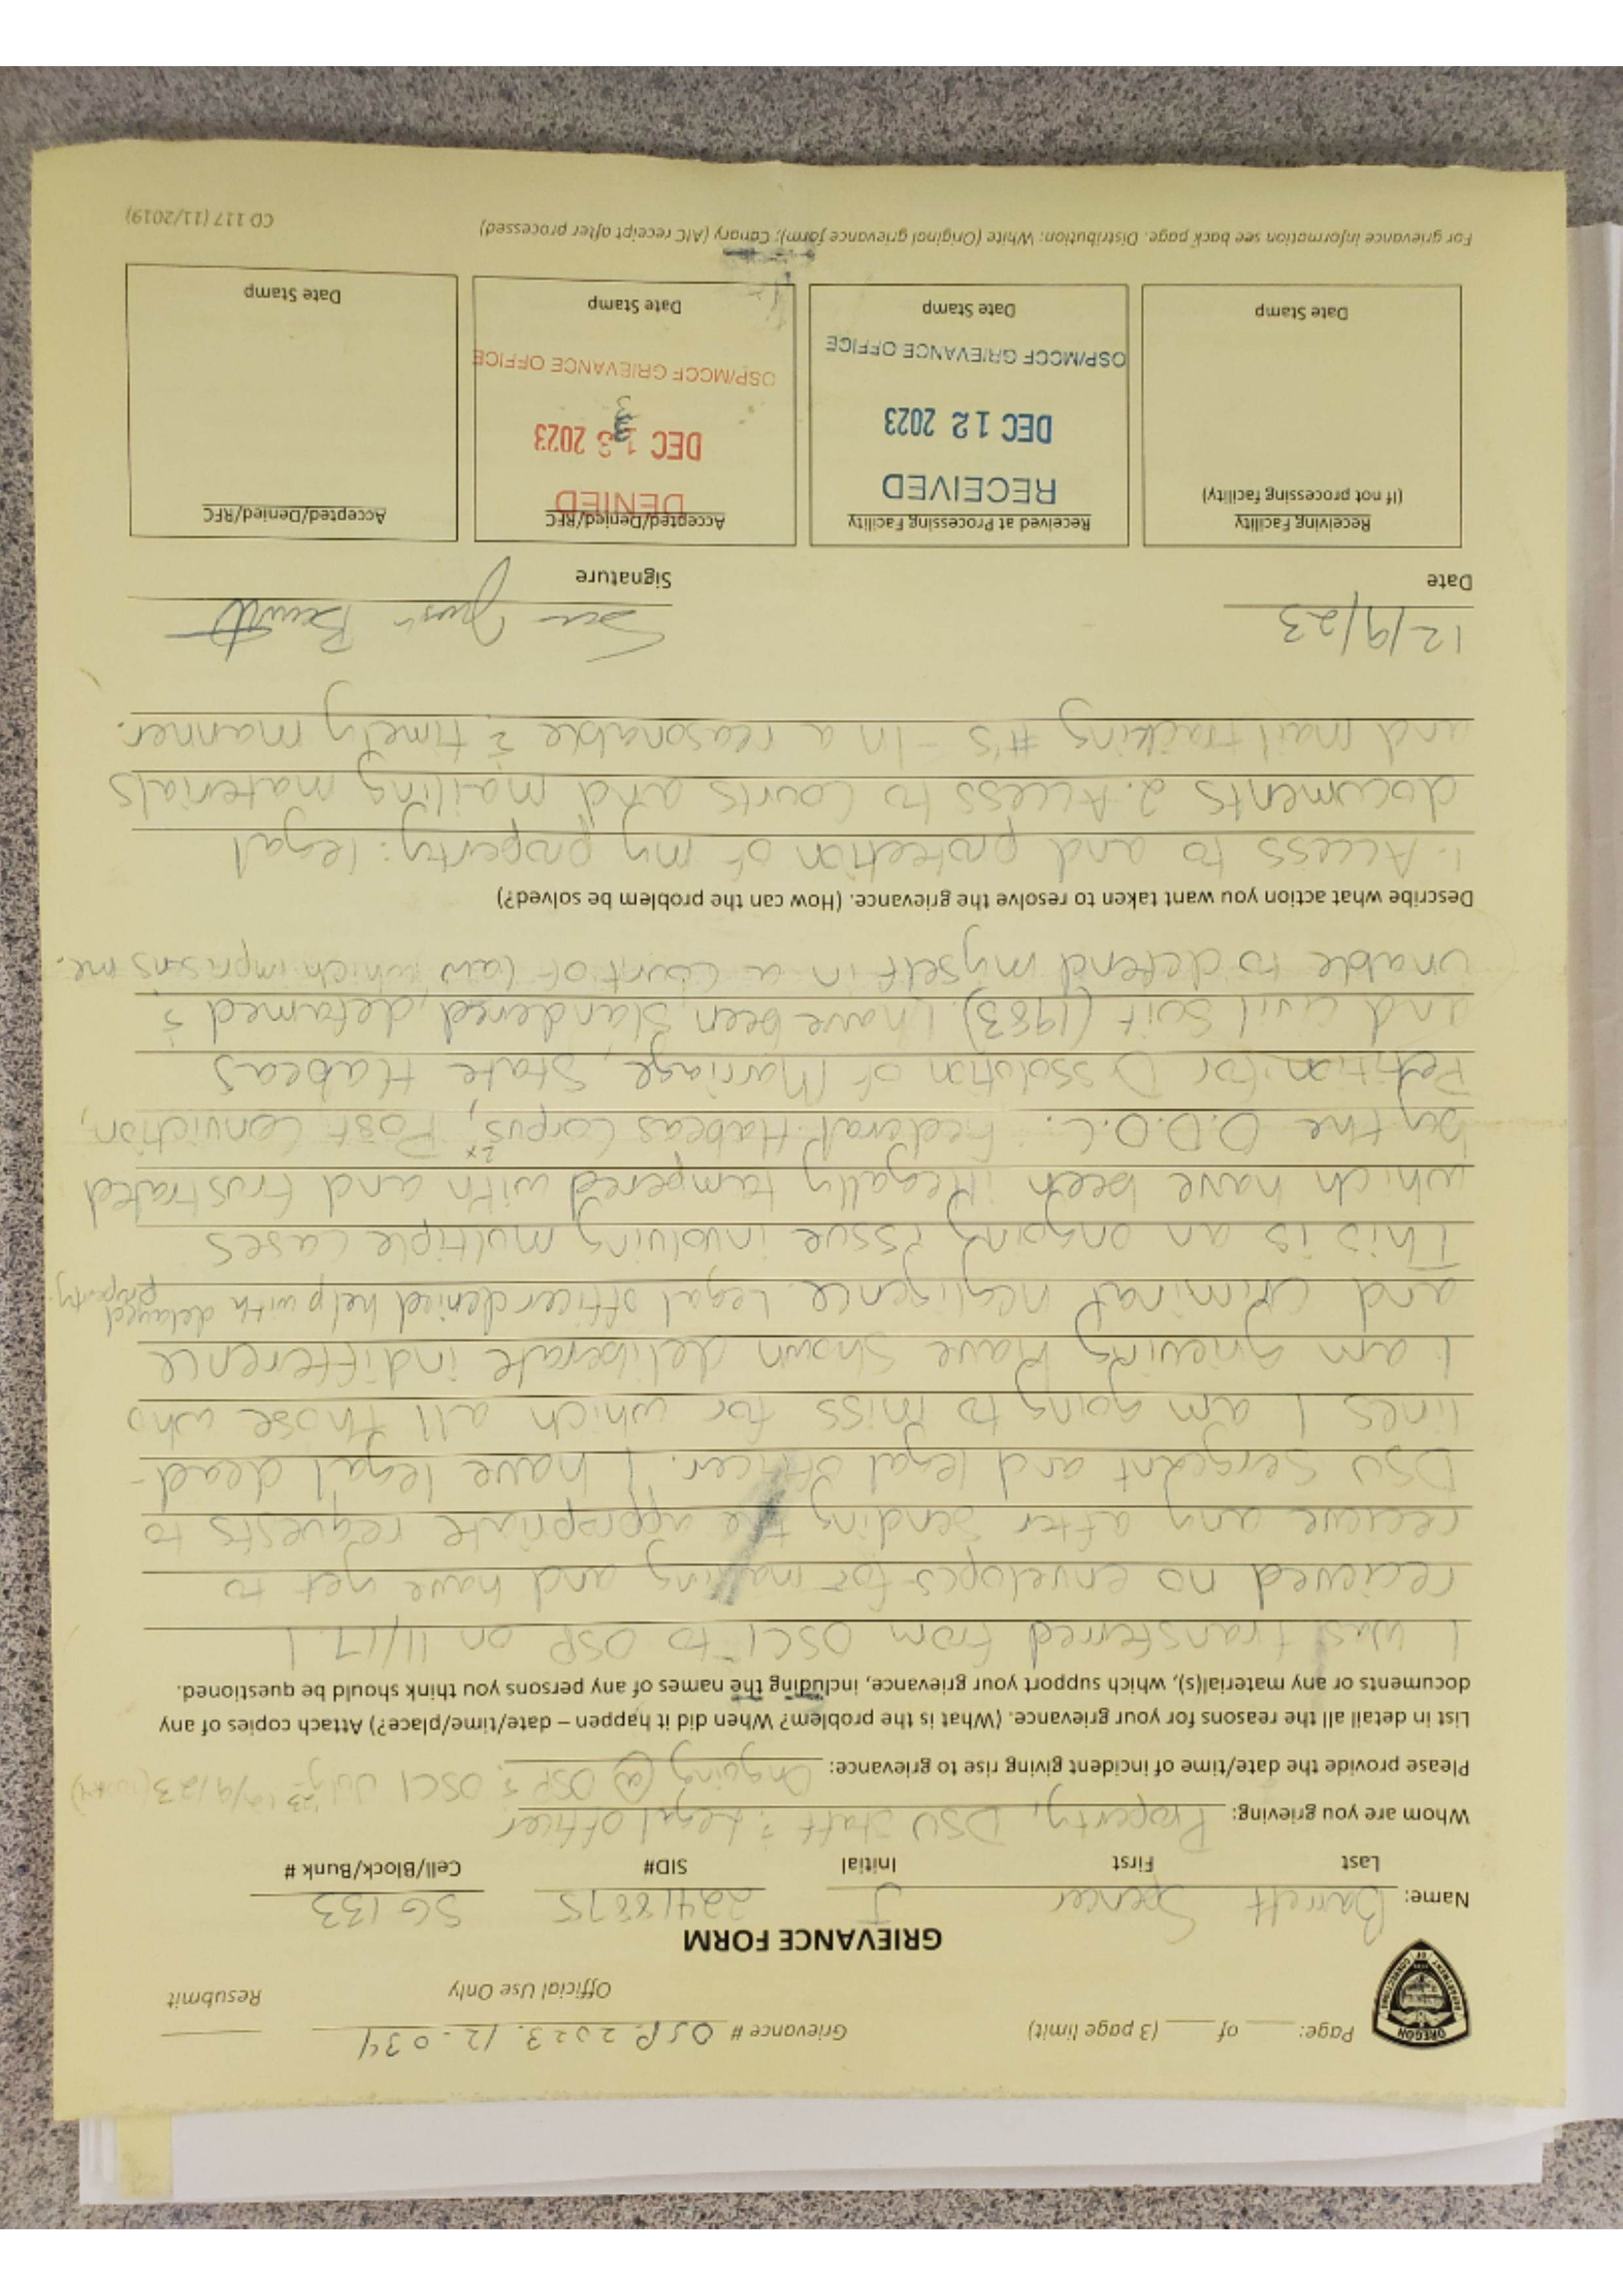 Page: ____ of ____ (3 page limit)
Grievance # OSP.2023.12.034
Official Use Only
Resubmit
OREGON
DEPARTMENT OF CORRECTIONS
GRIEVANCE FORM
Name: Barrett Spencer J 22418875 SG 133
Last First Initial SID# Cell/Block/Bunk #
Whom are you grieving: Property, DSU Staff & Legal officer
Please provide the date/time of incident giving rise to grievance: Ongoing @ OSP & OSCI July 23 12/9/23
List in detail all the reasons for your grievance. (What is the problem? When did it happen – date/time/place?) Attach copies of any
documents or any material(s), which support your grievance, including the names of any persons you think should be questioned.
I was transferred from OSCI to OSP on 11/17. I
recieved no envelopes for mailing and have yet to
recieve any after sending the appropriate requests to
DSU Sergeant and legal officer. I have legal dead-
lines I am going to miss for which all those who
I am grieving have shown deliberate indifference
and criminal negligence. Legal officer denied help with delayed property.
This is an ongoing issue involving multiple cases
which have been illegally tampered with and frustrated
by the O.D.O.C.: Federal Habeas Corpus 2x, Post Conviction,
Petition for Dissolution of Marriage, State Habeas
and Civil Suit (1983). I have been slandered, defamed &
unable to defend myself in a court of law which imprisons me.
Describe what action you want taken to resolve the grievance. (How can the problem be solved?)
1. Access to and protection of my property: legal
documents 2. Access to Courts and mailing materials
and mail tracking #'s - In a reasonable & timely manner.
12/9/23
Date Signature
Receiving Facility
(If not processing facility)
Date Stamp
Received at Processing Facility
RECEIVED
DEC 12 2023
OSP/MCCF GRIEVANCE OFFICE
Date Stamp
Accepted/Denied/RFC
DENIED
DEC 13 2023
OSP/MCCF GRIEVANCE OFFICE
Date Stamp
Accepted/Denied/RFC
Date Stamp
For grievance information see back page. Distribution: White (Original grievance form); Canary (AIC receipt after processed)
CD 117 (11/2019)